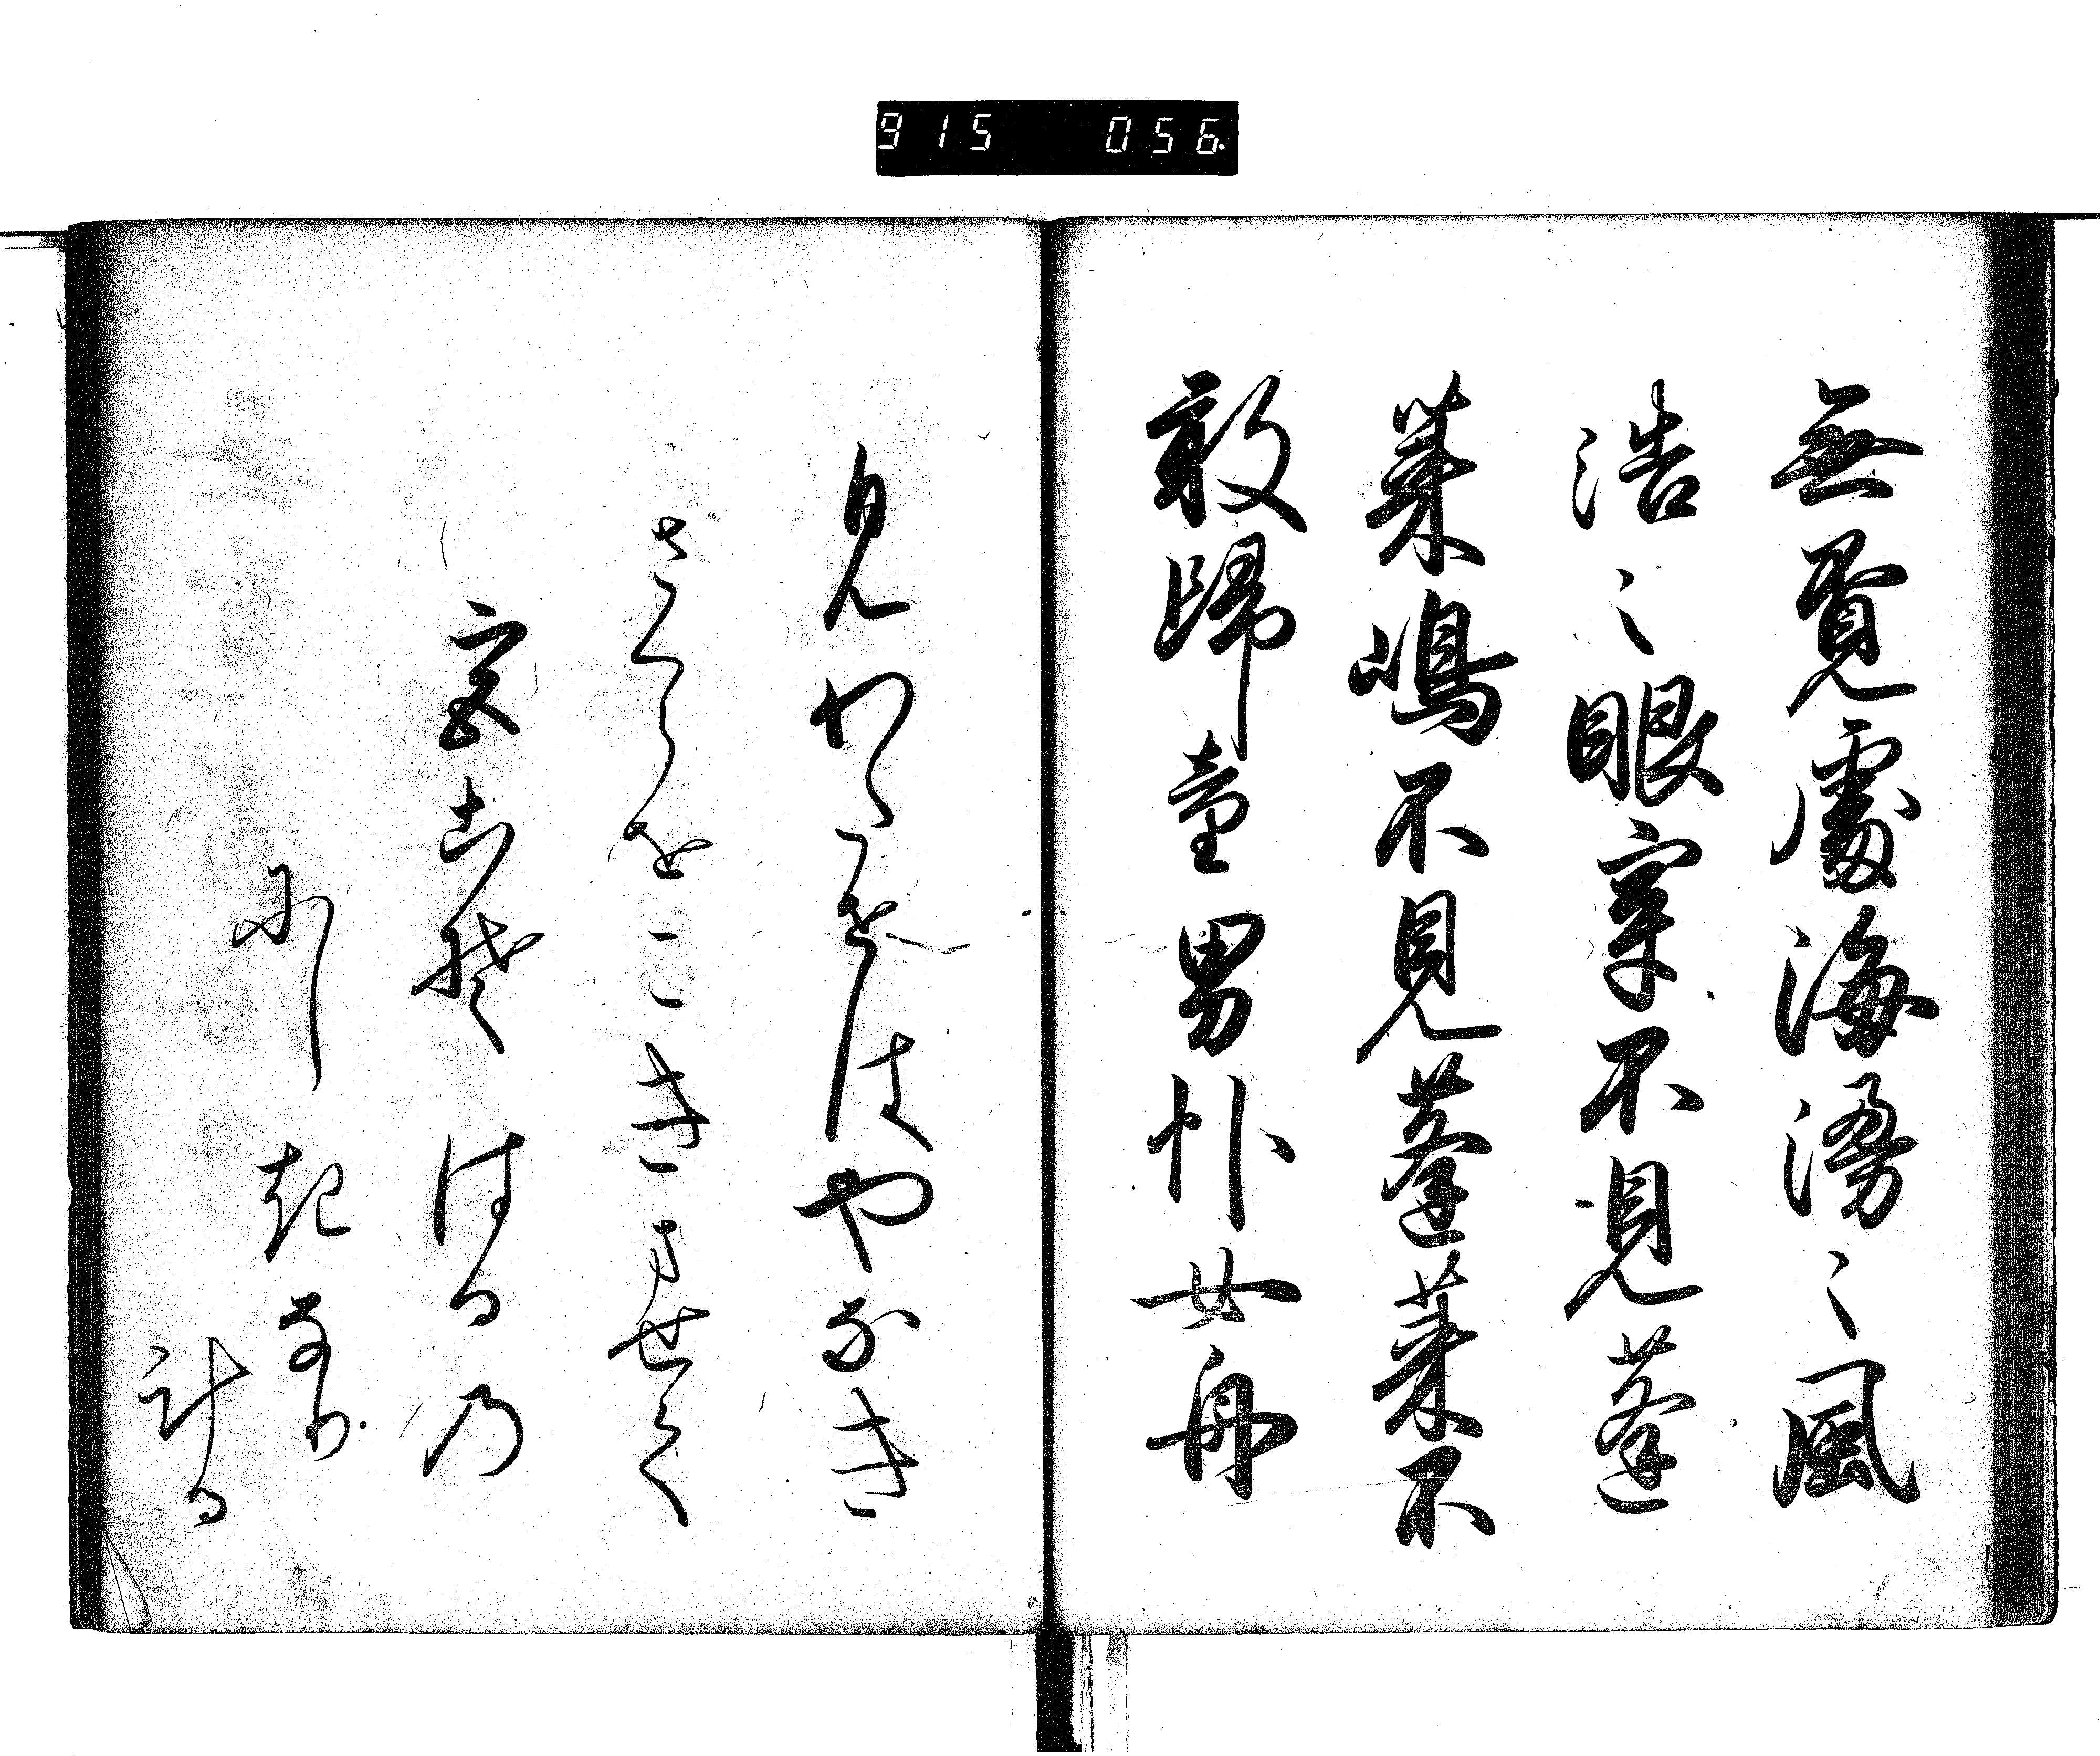 915 056
無覓處海漫〻風
浩〻眼穿不見蓬
萊嶋不見蓬萊不
敢歸童男丱女舟
見わたせはやなき
さくらをこきませて
宮こそはるの
にしきなり
計る